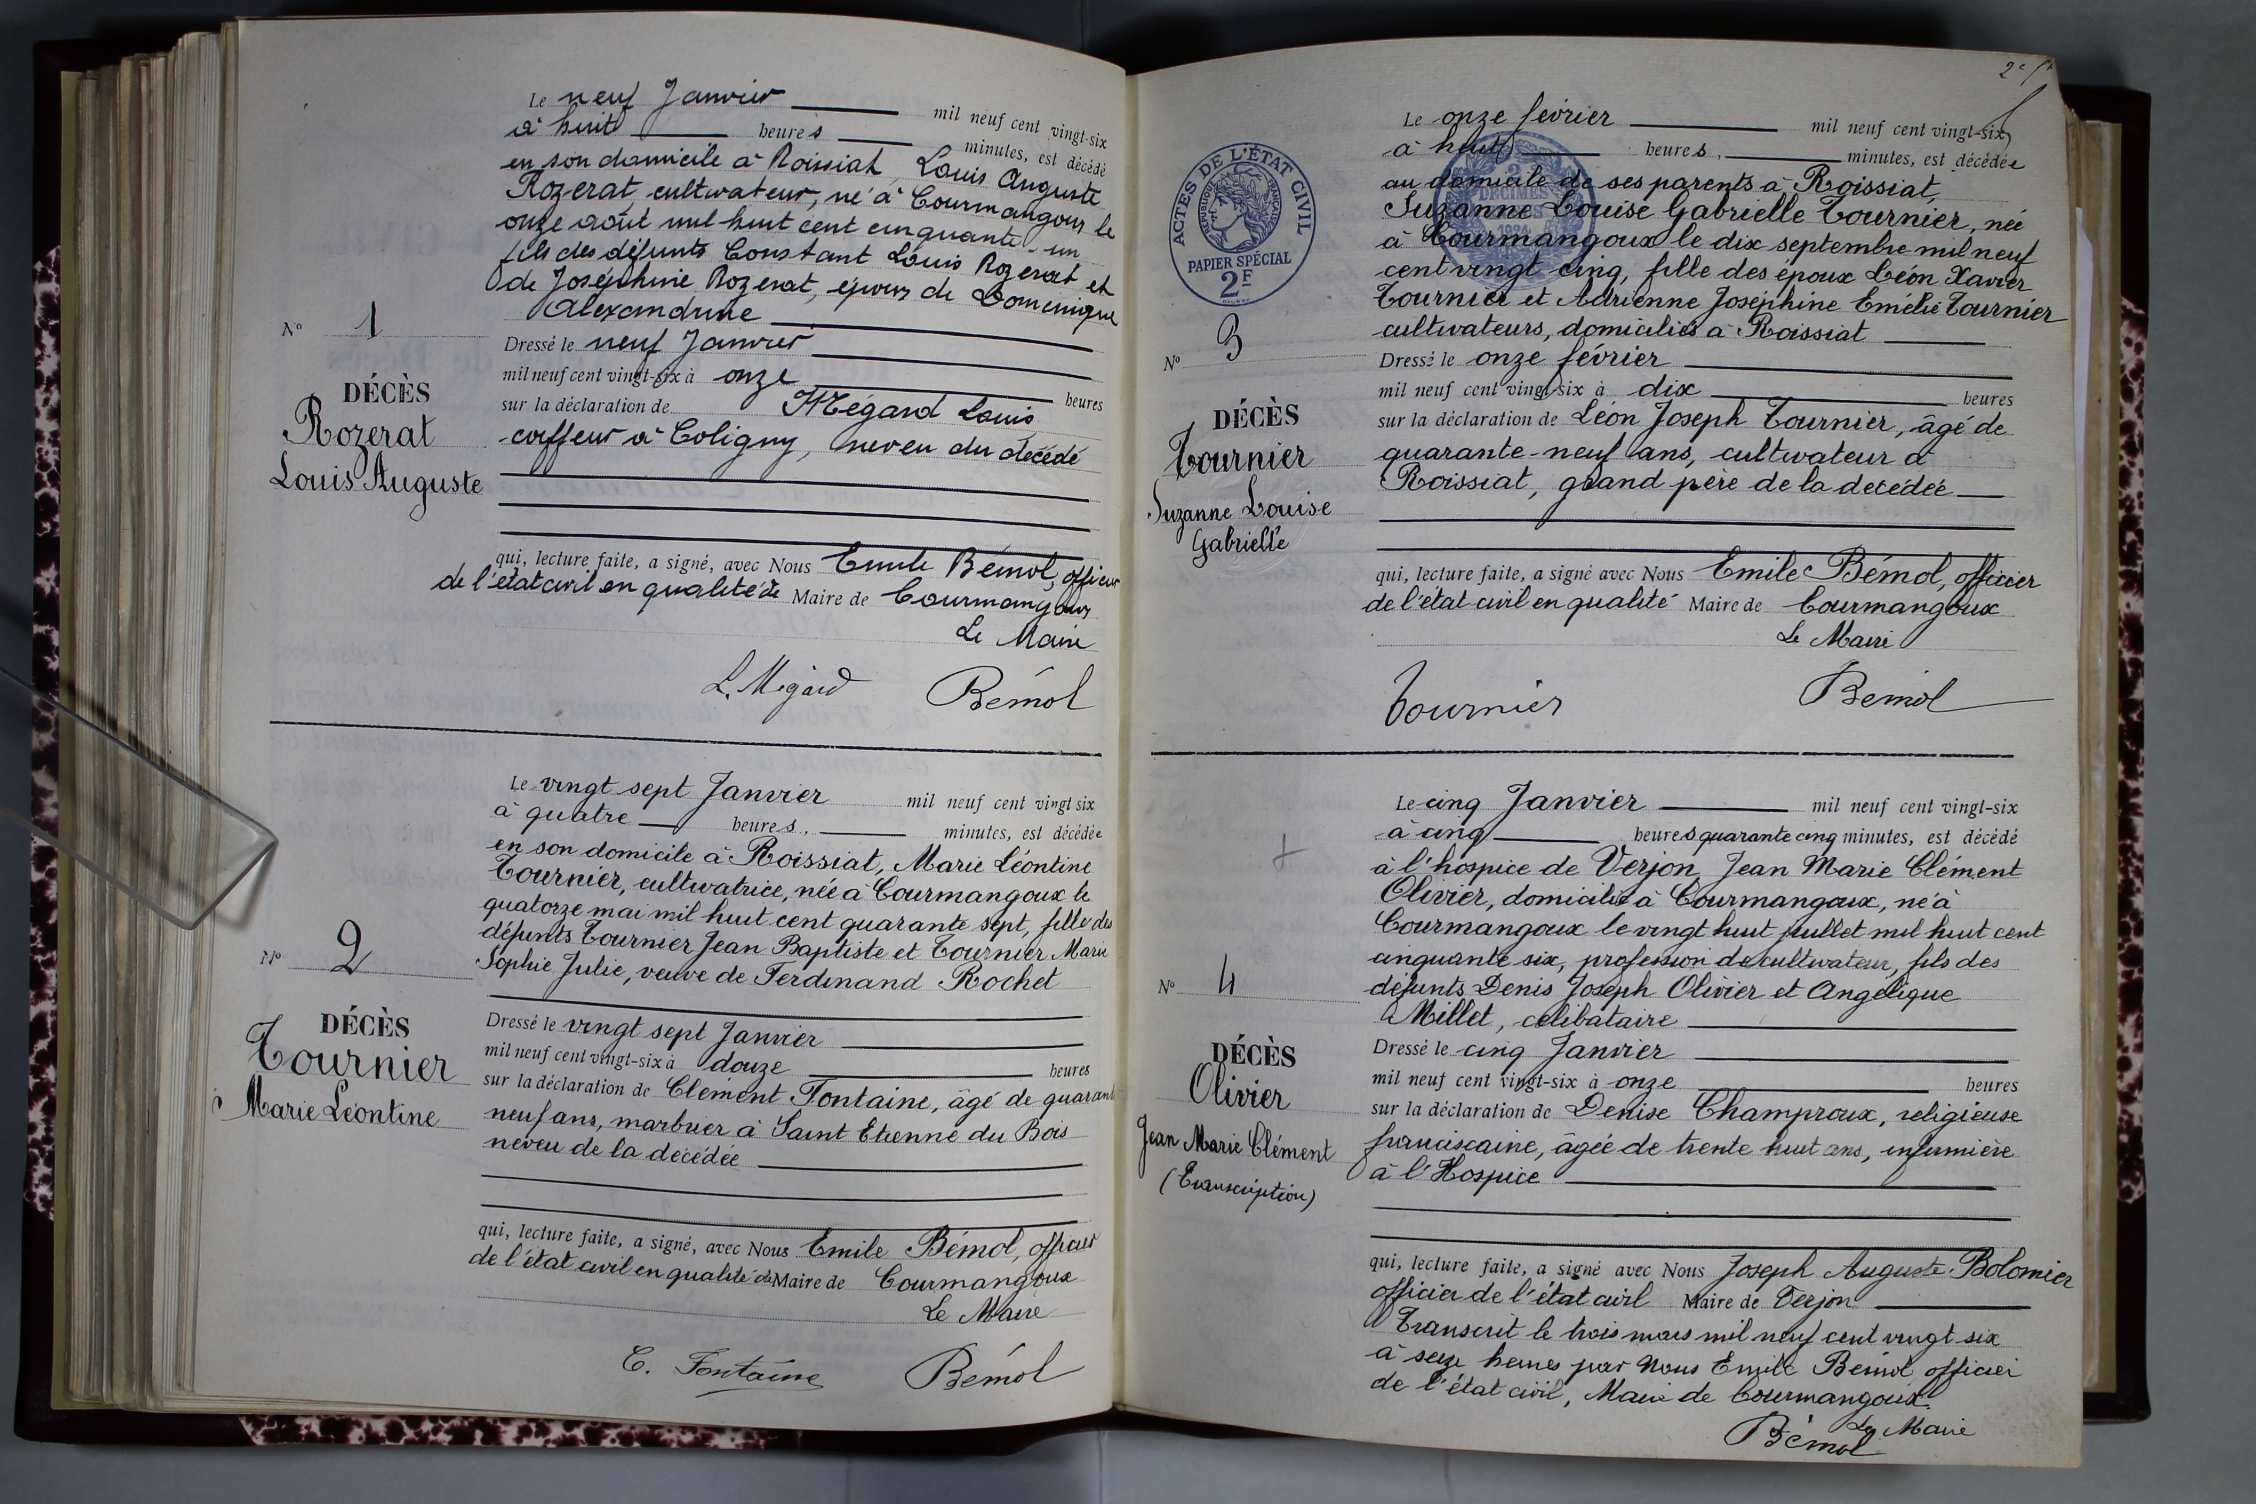 Le neuf Janvier mil neuf cent vingt-six
à huit heures minutes, est décédé
en son domicile à Roissiat, Louis Auguste
Rozerat, cultivateur, né à Courmangoux le
onze août mil huit cent cinquante-un
fils des défunts Constant Louis Rozerat et
de Joséphine Rozerat, époux de Dominique
Alexandrine
N° 1
Dressé le neuf Janvier
mil neuf cent vingt-six à onze heures
DÉCÈS
sur la déclaration de Mégard Louis
Rozerat
coiffeur à Coligny, neveu du décédé
Louis Auguste
qui, lecture faite, a signé, avec Nous Emile Bémol, officier
de l'état civil en qualité de Maire de Courmangoux
Le Maire
L. Mégard Bémol
Le vingt sept Janvier mil neuf cent vingt six
à quatre heures, minutes, est décédée
en son domicile à Roissiat, Marie Léontine
Tournier, cultivatrice, née à Courmangoux le
quatorze mai mil huit cent quarante sept, fille des
défunts Tournier Jean Baptiste et Tournier Marie
Sophie Julie, veuve de Ferdinand Rochet
N° 2
DÉCÈS
Dressé le vingt sept Janvier
Tournier
mil neuf cent vingt-six à douze heures
Marie Léontine
sur la déclaration de Clément Fontaine, âgé de quarante
neuf ans, marbrier à Saint Etienne du Bois
neveu de la décédée
qui, lecture faite, a signé, avec Nous Emile Bémol, officier
de l'état civil en qualité de Maire de Courmangoux
Le Maire
C. Fontaine Bémol
ACTES DE L'ÉTAT CIVIL
RÉPUBLIQUE FRANÇAISE
PAPIER SPÉCIAL
2F
2 DÉCIMES
Le onze février mil neuf cent vingt-six
à huit heures, minutes, est décédée
au domicile de ses parents à Roissiat,
Suzanne Louise Gabrielle Tournier, née
à Courmangoux le dix septembre mil neuf
cent vingt cinq, fille des époux Léon Xavier
Tournier et Adrienne Joséphine Emélie Tournier
cultivateurs, domiciliés à Roissiat
N° 3
Dressé le onze février
mil neuf cent vingt-six à dix heures
DÉCÈS
sur la déclaration de Léon Joseph Tournier, âgé de
Tournier
quarante-neuf ans, cultivateur à
Suzanne Louise
Roissiat, grand père de la décédée
Gabrielle
qui, lecture faite, a signé avec Nous Emile Bémol, officier
de l'état civil en qualité Maire de Courmangoux
Le Maire
Tournier Bémol
Le cinq Janvier mil neuf cent vingt-six
à cinq heures quarante cinq minutes, est décédé
à l'hospice de Verjon, Jean Marie Clément
Olivier, domicilié à Courmangoux, né à
Courmangoux le vingt huit juillet mil huit cent
cinquante six, profession de cultivateur, fils des
défunts Denis Joseph Olivier et Angélique
Millet, célibataire
N° 4
DÉCÈS
Dressé le cinq Janvier
Olivier
mil neuf cent vingt-six à onze heures
Jean Marie Clément
sur la déclaration de Denise Champroux, religieuse
(Transcription)
franciscaine, âgée de trente huit ans, infirmière
à l'Hospice
qui, lecture faite, a signé avec Nous Joseph Auguste Bolomier
officier de l'état civil Maire de Verjon
Transcrit le trois mars mil neuf cent vingt six
à seize heures par Nous Emile Bémol, officier
de l'état civil, Maire de Courmangoux.
Le Maire
Bémol